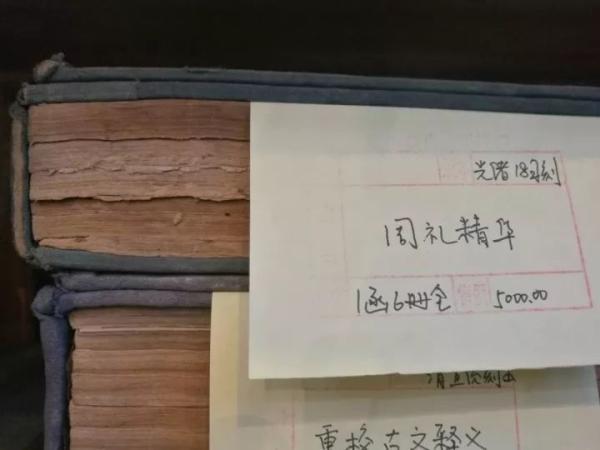 光绪18年刻
周礼精华
1函6册全 售价 5000.00
重校古文释义